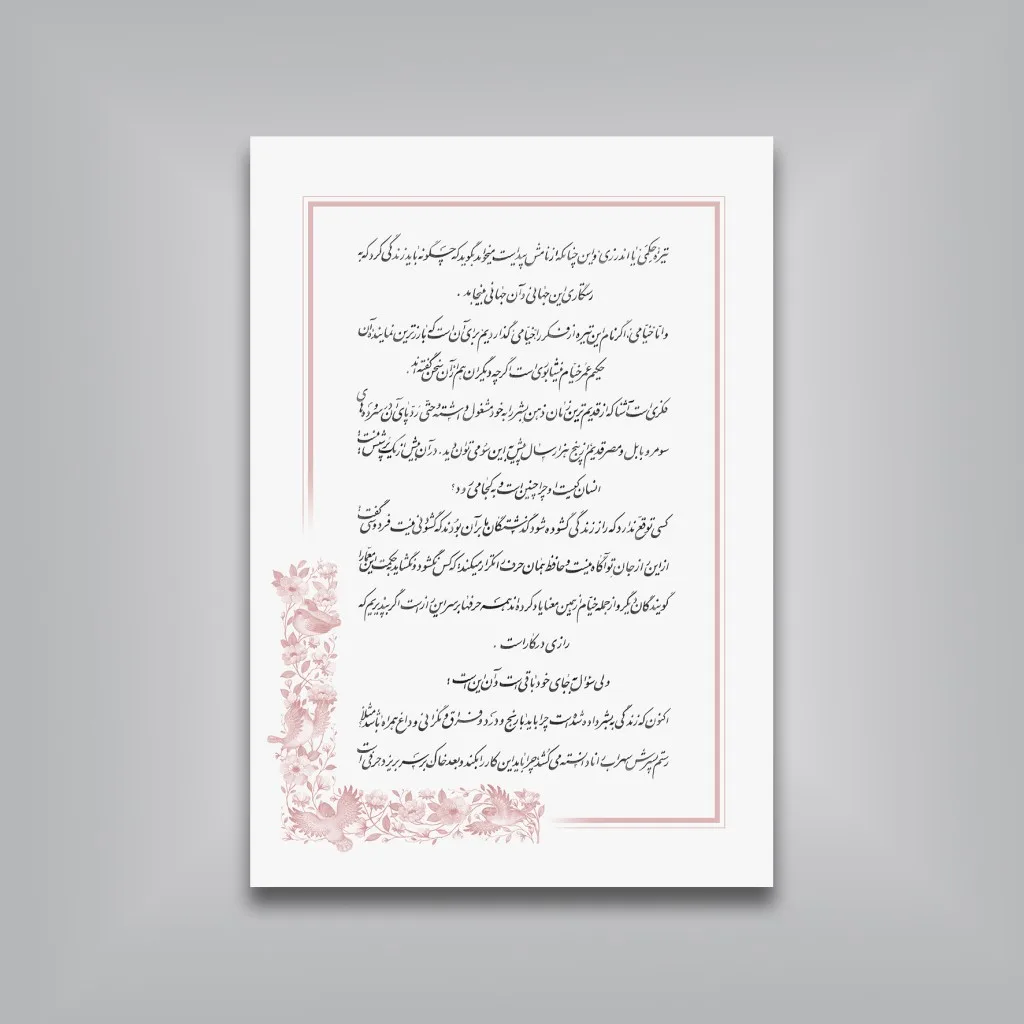 تیرهٔ حِکَمی یا اندرزی و این چنانکه از نامش پیداست میخواهد بگوید که چگونه باید زندگی کرد که به
رستگاری این جهانی و آن جهانی بینجامد .
و اما خیامی، اگر نام این تیره از فکر را خیامی گذاردیم برای آن است که بارزترین نمایندهٔ آن
حکیم عمر خیام نیشابوری است اگر چه دیگران هم از آن سخن گفته‌اند .
فکری است آشنا که از قدیم‌ترین زمان ذهن بشر را به خود مشغول داشته و حتّی ردّ پای آن در سروده‌های
سومر و بابل و مصر قدیم از پنج هزار سال پیش به این سو می‌توان دید. در آن بیش از یک پرسش نیست؛
انسان کیست و چرا چنین است و به کجا می‌رود؟
کسی توقّع ندارد که راز زندگی گشوده شود گذشتگان ما بر آن بودند که گشودنی نیست فردوسی گفت؛
از این راز جان تو آگاه نیست و حافظ همان حرف را تکرار میکند؛ که کس نگشود و نگشاید بحکمت این معمّا را
گویندگان دیگر و از جمله خیام از همین معنا یاد کرده‌اند همه حرفها بر سر این راز است اگر بپذیریم که
رازی در کار است .
ولی سؤال به جای خود باقی است و آن این است؛
اکنون که زندگی به بشر داده شده است چرا باید با رنج و درد و فراق و نگرانی و داغ همراه باشد مثلاً
رستم پسرش سهراب را نادانسته می‌کشد چرا باید این کار را بکند و بعد خاک بر سر بریزد حرفی است